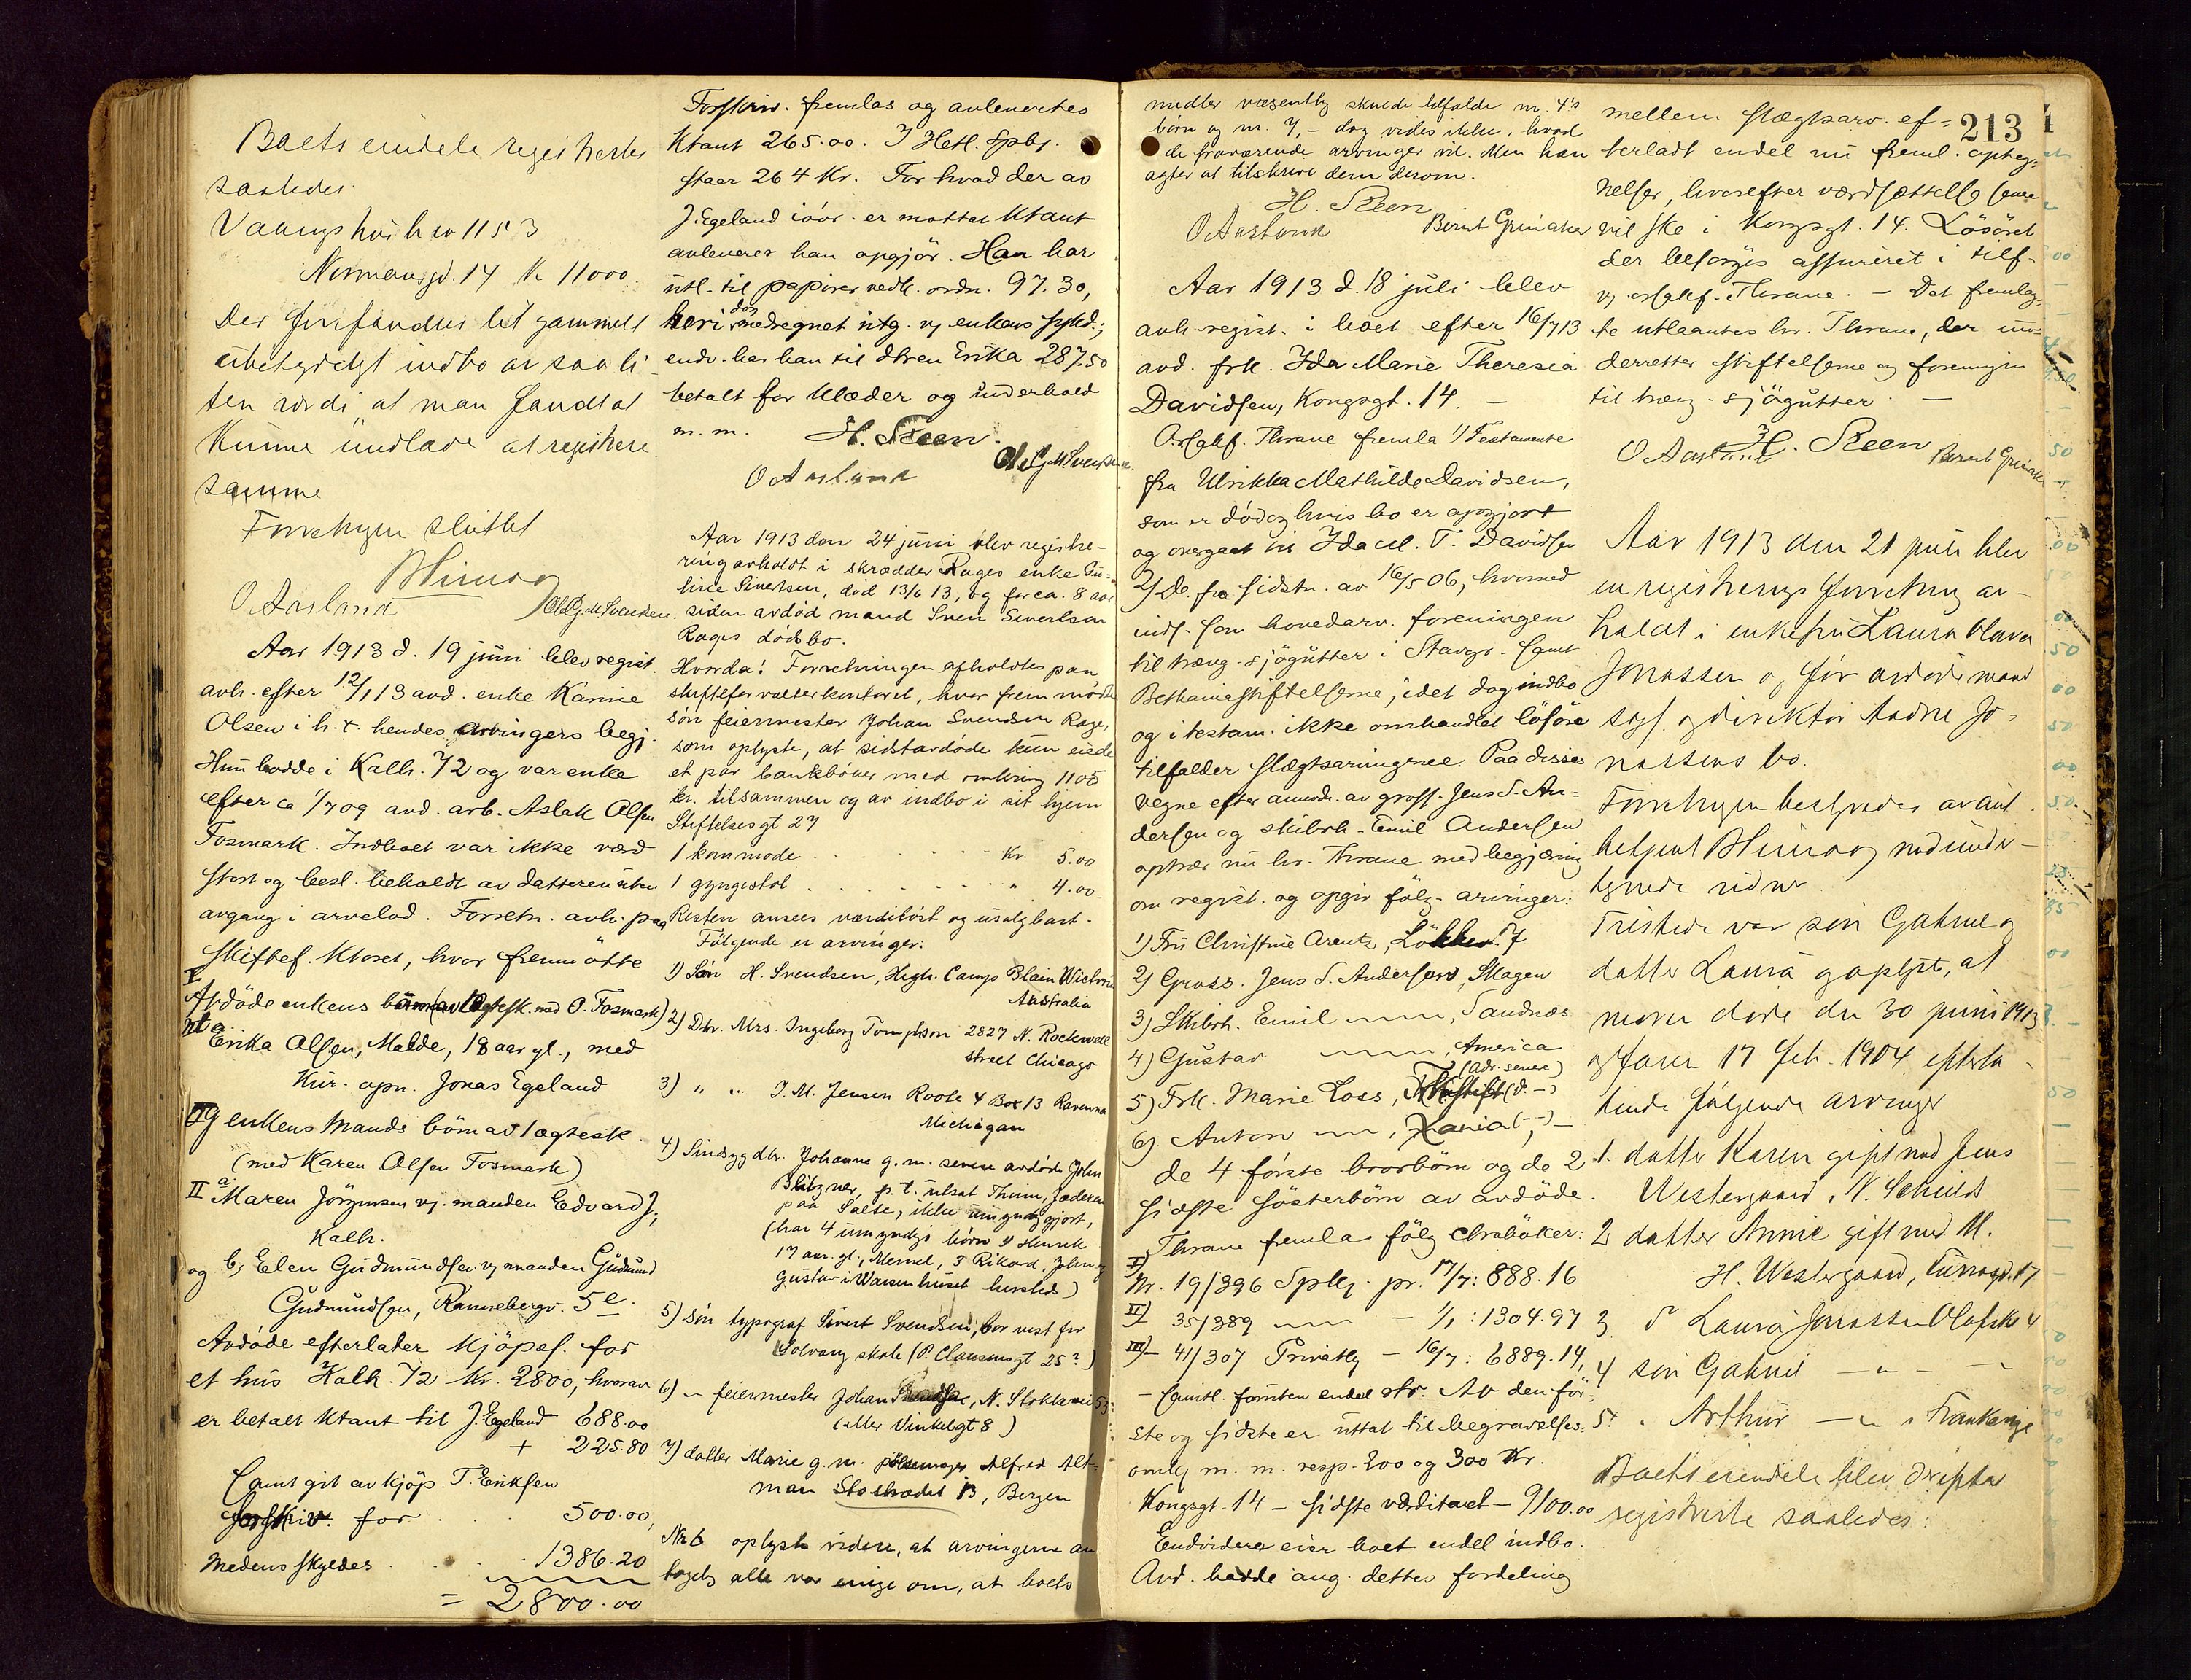 Boets eiendele registrertes
saaledes
Vaaningshus br no 1153
Normansgd. 14 Kr 11000.
Der forefandtes lit gammelt
ubetydeligt indbo av saa li-
ten værdi, at man fandt at
kunne undlade at registrere
samme
Forretngen sluttet
O Aasland
Aar 1913 d. 19 juni blev regist.
avh. efter 12/1 13 avd. enke Karine
Olsen i h. t. hendes arvingers begj.
Hun bodde i Kalh. 72 og var enke
efter ca 1/7 09 avd. arb. Aslak Olsen
Fosmark. Indboet var ikke værd
stort og besl. beholdt av datteren uten
avgang i arvelod. Forretn. avh. paa
skiftef. Ktoret, hvor fremmötte
I
Avdöde enkens börn (av Egtesk. med O. Fosmark)
Erika Olsen, Malde, 18 aar gl., med
Kur. opn. Jonas Egeland
Og enkens mands börn av 1 egtesk.
(med Karen Olsen Fosmark)
II a Maren Jörgensen vj. manden Edvard J.,
Kalh.
og b, Elen Gudmundsen vj manden Gudmund
Gudmundsen, Rannebergv. 5 e.
Avdöde efterlater kjöpes. for
et hus Kalh. 72 Kr. 2800, hvorav
er betalt Ktant til J. Egeland 688.00
+ 225.80
samt git av kjöp. T. Eriksen
forskriv. for . . . 500.00,
medens skyldes . . . 1386.20
= 2800.00
Forskriv. fremlas og avleverties
Ktant 265.00. I Hetl. Spbk.
staar 264 Kr. For hvad der av
J. Egeland iovr. er mottat Ktant
avleverer han opgjör. Han har
utl. til papirer vedk. ordn. 97.30,
heri dog medregnet utg. vj enkens sykd.;
endv. har han til dtren Erika 287.50
betalt for klæder og underhold
m. m.
H. Steen.
O Aasland
Aar 1913 den 24 juni blev registre-
ring avholdt i skrædder Rages enke Gu-
line Sivertsen, död 13/6 13, og for ca. 8 aar
siden avdöd mand Sven Sivertson
Rages dödsbo.
Hvorda! Forretningen afholdtes paa
skifteforvalterkontoret, hvor frem mödte
sön feiermester Johan Svendsen Rage,
som oplyste, at sidstavdöde kun eiede
et par bankböker med omkring 1105
kr. tilsammen og av indbo i sit hjem
Stiftelsesgt 27
1 kommode . . . Kr. 5.00
1 gyngestol . . . " 4.00
Resten ansees værdilöst og usalgbart.
Fölgende er arvinger:
1) Sön H. Svendsen, High. Camp Blain Wictoria
Australia
2) Dtr. Mrs. Ingeborg Tompson 2827 N. Rockwell
street Chicago
3) " " J. M. Jensen Roote 4 Box 13 Ravenna
Michigan
4) Sindsyg dtr. Johanne g. m. senere avdöde John
Blitzner, p. t. utsat Thime, Jæderen
paa Salte, ikke umyndiggjort,
(har 4 umyndige börn 1) Henrik
17 aar. gl., Mernel, 3 Rikard, John og
Gustav i Waisenhuset hersteds)
5) sön typograf Sivert Svendsen, bor vest for
Solvang skole (P. Clausensgt 25?)
6) — feiermester Johan Svendsen, N. Stokkavei 53
(eller Vinkelgt 8)
7) datter Marie g. m. pölsemager Alfred Alt-
man Stostrædet 13, Bergen
Nr. 6 oplyste videre, at arvingerne an
tagelig alle var enige om, at boets
213
midler væsentlig skulde tilfalde nr. 4's
börn og nr. 7, - dog vides ikke, hvad
de fraværende arvinger vil. Men han
agter at tilskrive dem derom.
H. Steen
O Aasland Bernt Grinaker
Aar 1913 d. 18 juli blev
avh regist. i boet efter 16/7 13
avd. frk. Ida Marie Theresia
Davidsen, Kongsgt. 14. —
O.r.sakf. Thrane fremla 1) Testamente
fra Ulrikka Mathilde Davidsen,
som er död og hvis bo er opgjort
og overgaat til Ida M. T. Davidsen
2) Do. fra sidstn. av 16/5 06, hvormed
inds. som hovedarv. foreningen
til træng. sjögutter i Stavgr. samt
Bethaniastiftelserne; idet dog indbo
og i testam. ikke omhandlet lösöre
tilfalder slægtsarvingene. Paa disses
vegne efter anmodn. av gross. Jens S. An-
dersen og skibsh. Emil Andersen
optrær nu hr. Thrane med begjæring
om regist. og opgir fölg. arvinger:
1) Fru Christine Arentz, Lökkev. 7
2) Gross. Jens S. Andersen, Skagen
3) Skibsh. Emil —"—, Sandnæs
4) Gustav —"—, America
(adr. senere)
5) Frk. Marie Loss, (d. —)
6) Anton —"—, Xania (—"—) —
de 4 förste brorbörn og de 2
sidste sösterbörn av avdöde.
Thrane fremla fölg ctrabøker:
I)
Nr. 19/396 Spbk. pr. 17/7: 888.16
II) 35/389 —"— — 1/1: 1304.97
III) — 41/307 Privatbk — 16/7: 6889.14,
— samtl. foruten endel rtr. Av den för-
ste og sidste er uttat til begravelses-
omk m. m. resp. 200 og 300 Kr.
Kongsgt. 14 — sidste værditaxt — 9100.00
Endvidere eier boet endel indbo.
Avd. hadde ang. dettes fordeling
mellem slægtsarv. ef-
terladt endel nu freml. opteg-
nelser, hvorefter værdsættelse senere
vil ske i Kongsgt. 14. Lösöret
der besörges assureret i tilf-
vj orsakf. Thrane. — Det fremlag-
te utlaantes hr. Thrane, der un-
derretter stiftelserne og foreningen
til træng. sjögutter. —
O Aasland H. Steen Bernt Grinaker
Aar 1913 den 21 juli blev
en registrerings forretning av-
holdt i enkefru Laura Olava
Jonassen og för avdöde mand
sogf. og direktör Aadne Jo-
nassens bo.
Forretngen bestyredes av aut.
betjent og med under-
tegnede vidner.
Tilstede var sön Gabriel og
datter Laura og oplyste, at
moren döde den 30 juni 1913
og faren 17 feb. 1904 efterla-
tende fölgende arvinger
1. datter Karen gift med Jens
Westergaard, N. Schieldt
2 datter Annie gift med M.
H. Westergaard, 17
3 do Laura Jonassen Olafskl 4
4 sön Gabriel —"— —"—
5 " Arthur —"— i Frankrige
Boets eiendele blev derefter
registrerte saaledes: